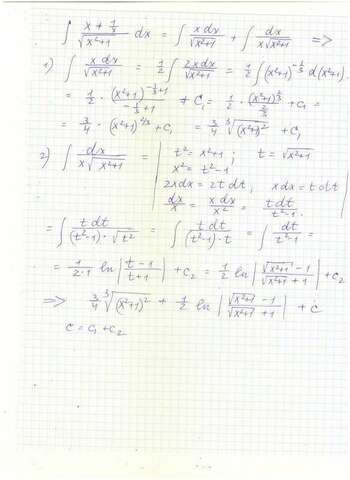 ∫ (x + 1/x)/√(x²+1) dx = ∫ x dx/√(x²+1) + ∫ dx/(x√(x²+1)) =>
1) ∫ x dx/√(x²+1) = 1/2 ∫ 2x dx/√(x²+1) = 1/2 ∫ (x²+1)^(-1/3) d(x²+1) =
= 1/2 · (x²+1)^(-1/3+1)/(-1/3+1) + C₁ = 1/2 · (x²+1)^(2/3)/(2/3) + C₁ =
= 3/4 · (x²+1)^(2/3) + C₁ = 3/4 ∛(x²+1)² + C₁
2) ∫ dx/(x√(x²+1)) = | t² = x²+1; t = √(x²+1)
x² = t²-1
2xdx = 2t dt, xdx = t dt
dx/x = x dx/x² = t dt/(t²-1) |
= ∫ t dt/((t²-1)·√t²) = ∫ t dt/((t²-1)·t) = ∫ dt/(t²-1) =
= 1/(2·1) ln |(t-1)/(t+1)| + C₂ = 1/2 ln |(√(x²+1) -1)/(√(x²+1) +1)| + C₂
=> 3/4 ∛(x²+1)² + 1/2 ln |(√(x²+1) -1)/(√(x²+1) +1)| + C
C = C₁ + C₂